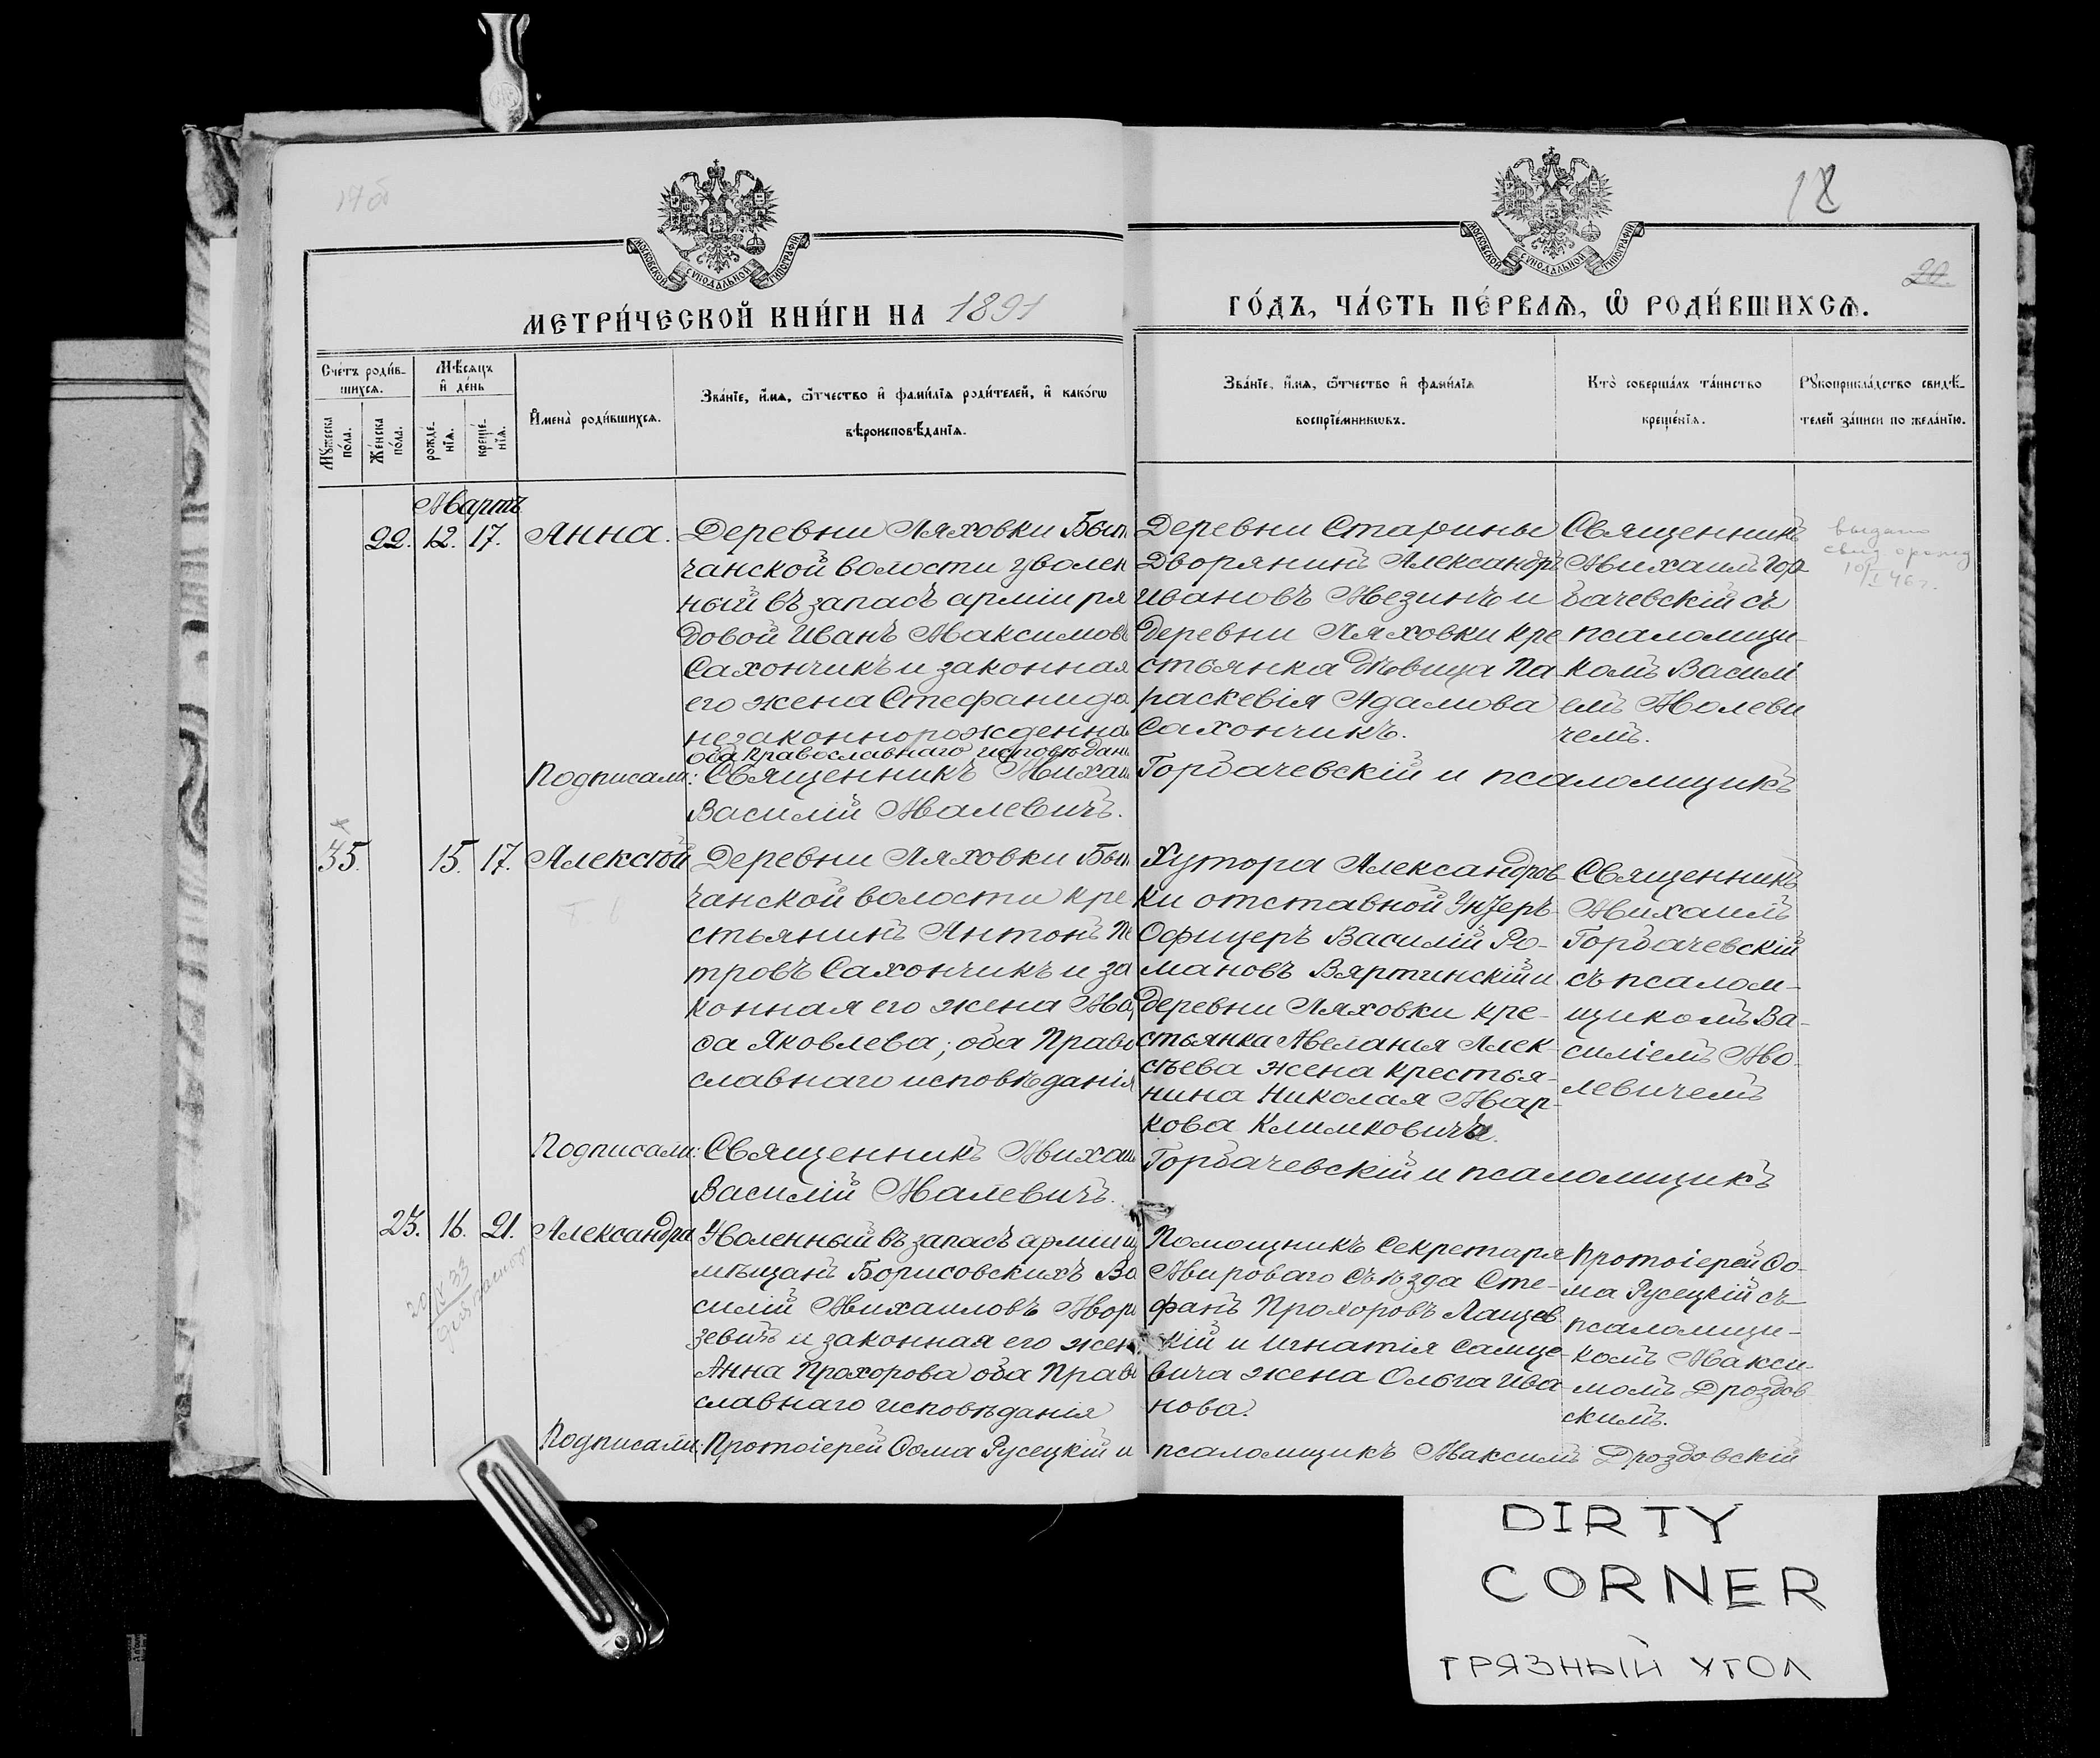 18
20.
МОСКОВСКОЙ СѴНОДАЛЬНОЙ ТИПОГРАФІИ
МОСКОВСКОЙ СѴНОДАЛЬНОЙ ТИПОГРАФІИ
МЕТРИ́ЧЕСКОЙ КНИ́ГИ НА 1891
ГО́ДЪ, ЧА́СТЬ ПЕ́РВАѦ, Ѡ҆ РОДИ́ВШИХСѦ.
Сче́тъ роди́в-
шихсѧ.
Мꙋжеска
по́ла.
Же́нска
по́ла.
Мѣ́сѧцъ
и҆ де́нь
рожде́-
нїѧ.
креще́-
нїѧ.
И҆мена̀ роди́вшихсѧ.
Зва́нїе, и҆́мѧ, ѻ҆́тчество и҆ фами́лїѧ роди́телей, и҆ како́гѡ
вѣроисповѣ́данїѧ.
Зва́нїе, и҆́мѧ, ѻ҆́тчество и҆ фами́лїѧ
воспрїе́мникѡвъ.
Кто̀ соверша́лъ та́инство
креще́нїѧ.
Рꙋкоприкла́дство свидѣ́-
телей за́писи по жела́нїю.
Мартъ
22. 12. 17. Анна.
Деревни Ляховки Быт
чанской волости уволен
ный въ запасъ арміи ря
довой Иванъ Максимов
Сахончикъ и законная
его жена Стефанида
незаконнорожденна
оба Православнаго исповѣдан
Деревни Старины
Дворянинъ Александръ
Ивановъ Мезинъ и
деревни Ляховки кре
стьянка дѣвица Па
раскевія Адамова
Сахончикъ.
Священникъ
Михаилъ Гор
бачевскій съ
псаломщи-
комъ Василі
емъ Молеви
чемъ.
выдано
свид о рожд
Подписали: Священникъ Михаи Горбачевскій и псаломщикъ
Василій Малевичъ.
35. 15. 17. Алексѣй
Деревни Ляховки Быт
чанской волости кре
стьянинъ Антонъ Пе
тровъ Сахончикъ и за
конная его жена Ма
ѳа Яковлева; оба Право
славнаго исповѣданія
Хутора Александров
ки отставной Унтеръ-
Офицеръ Василій Ро-
мановъ Вяртинскій и
деревни Ляховки кре-
стьянка Меланія Алек-
сѣева жена крестья-
нина Николая Мар-
кова Климковича.
Священникъ
Михаилъ
Горбачевскій
съ псалом-
щикомъ Ва-
силіемъ Мо-
левичемъ
Подписали: Священникъ Михаи Горбачевскій и псаломщикъ
Василій Малевичъ.
23. 16. 21. Александра
Уволенный въ запасъ арміи из
мѣщанъ Борисовскихъ Ва
силій Михаиловъ Мор
зевичъ и законная его жен
Анна Прохорова оба Прав
славнаго исповѣданія
Помощникъ Секретаря
Мироваго Съѣзда Сте-
фанъ Прохоровъ Лащев
скій и Игнатія Самце-
вича жена Ольга Ива
нова.
Протоіерей Ѳо-
ма Русецкій съ
псаломщи-
комъ Макси-
момъ Дроздов
скимъ.
Подписали: Протоіерей Ѳома Русецкій и псаломщикъ Максимъ Дроздовскій
DIRTY
CORNER
ГРЯЗНЫЙ УГОЛ